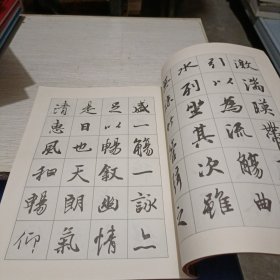 激湍暎帶
引以為流觴曲
水列坐其次雖
絲竹管弦之
盛一觴一詠亦
足以暢叙幽情
是日也天朗氣
清惠風和暢仰